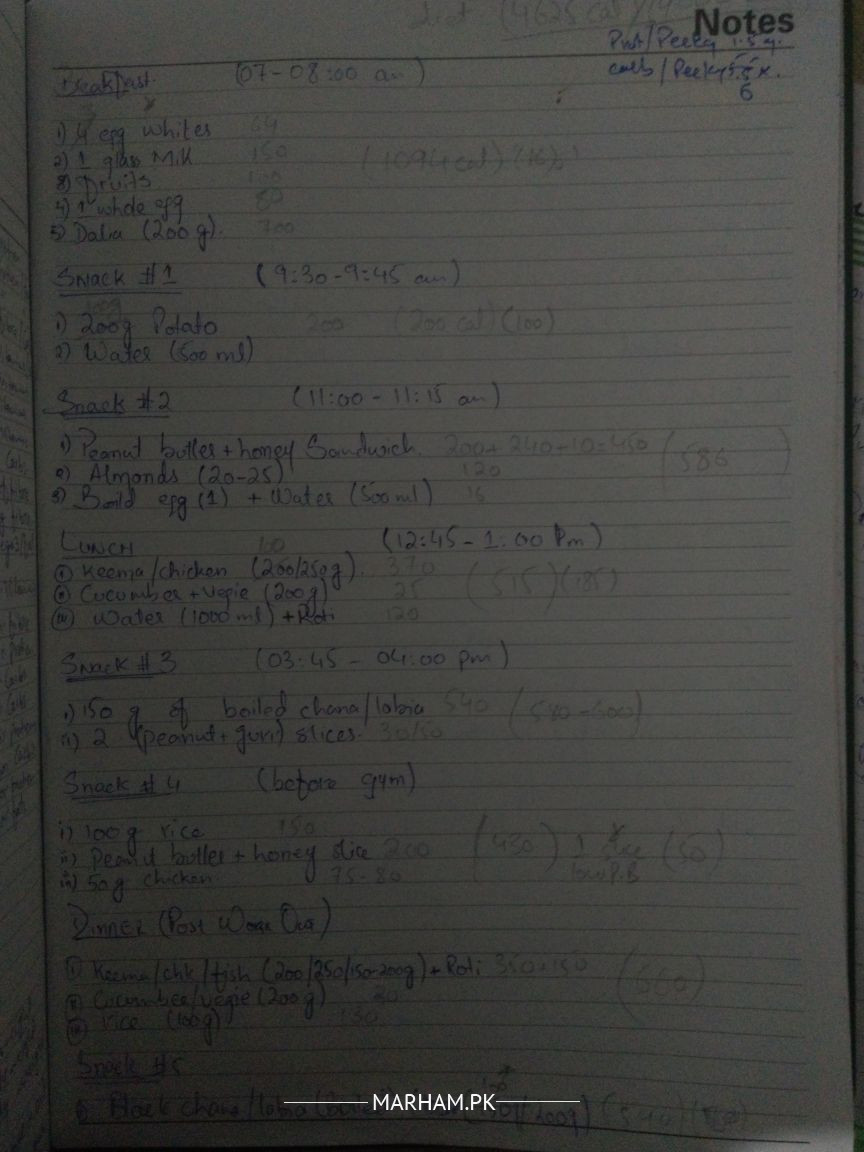 (4625 Cal)
Notes
Prot/Per kg 1.5 g.
carb/Per kg 5.5 x.
6
Breakfast. (07-08:00 am)
1) 4 egg whites 64
2) 1 glass Milk 150
3) Fruits 100
4) 1 whole egg 80
5) Dalia (200g). 700
(1094 cal)
Snack #1 (9:30-9:45 am)
1) 200g Potato 200 (200 cal) (100)
2) Water (500 ml)
Snack #2 (11:00 - 11:15 am)
1) Peanut butter + honey Sandwich. 200+240+10=450 (586
2) Almonds (20-25) 120
3) Boild egg (1) + Water (500 ml) 16
LUNCH 100 (12:45-1:00 Pm)
i) Keema/chicken (200/250g). 370
ii) Cucumber + vegie (200g) 25 (515) (185)
iii) Water (1000 ml) + Roti 120
Snack #3 (03:45 - 04:00 pm)
i) 150 g of boiled chana/lobia 540 (540-600)
ii) 2 (peanut + gurr) slices. 30/50
Snack #4 (before gym)
i) 100g rice 150
ii) Peanut butter + honey slice 200 (430) 1 slice (50)
iii) 50g chicken. 75-80 low P.B
Dinner (Post Work Out)
i) Keema/chk/fish (200/250/150-200g) + Roti 350+150 (660)
ii) Cucumber/vegie (200g) 30
iii) rice (100g) 130
Snack #5
i) Black chana/lobia (540)
MARHAM.PK